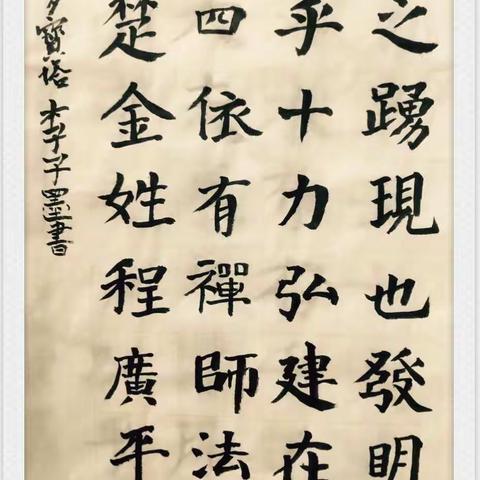 之踴現也發明
乎十力弘建在
四依有禪師法
楚金姓程廣平
多寶塔 李子墨書